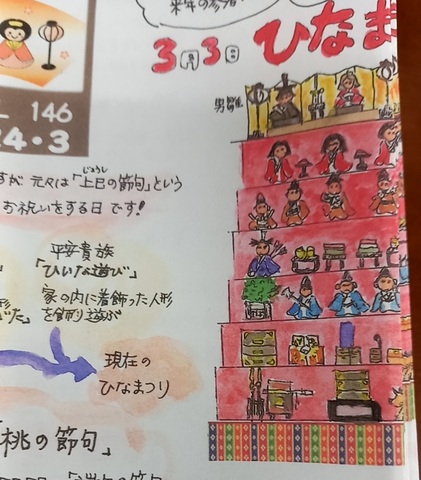 来年の参考
3月3日 ひなま
146
24・3
男雛
すが 元々は「上巳の節句」という
じょうし
お祝いをする日です!
平安貴族
「ひいな遊び」
家の内に着飾った人形
を飾り遊ぶ
現在の
ひなまつり
桃の節句」